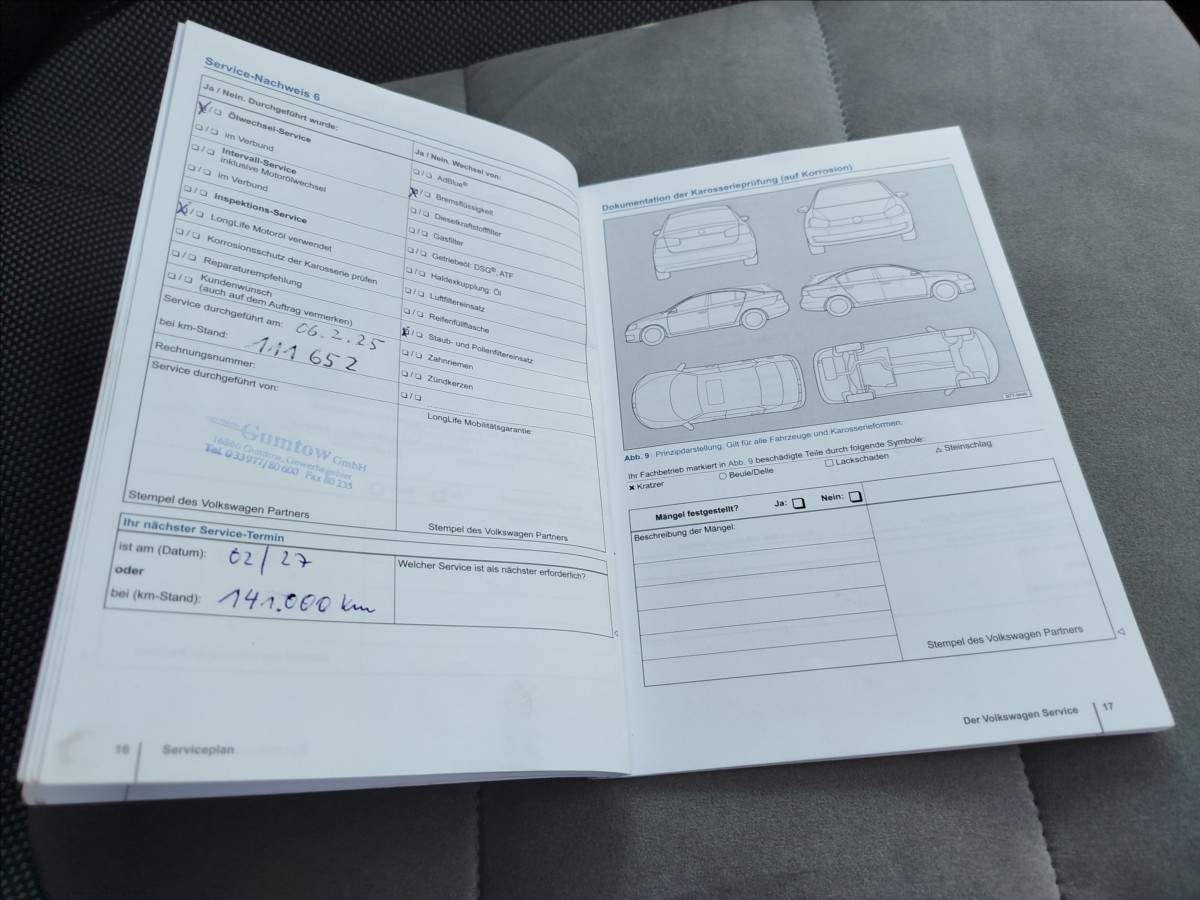 Service-Nachweis 6
Ja / Nein. Durchgeführt wurde:
Ölwechsel-Service
im Verbund
Intervall-Service
inklusive Motorölwechsel
im Verbund
Inspektions-Service
LongLife Motoröl verwendet
Korrosionsschutz der Karosserie prüfen
Reparaturempfehlung
Kundenwunsch
(auch auf dem Auftrag vermerken)
Service durchgeführt am: 06.2.25
bei km-Stand: 111 652
Rechnungsnummer:
Service durchgeführt von:
Gumtow GmbH
16866 Gumtow, Gewerbegebiet
Tel. 033977/80 600 · Fax 80 235
Stempel des Volkswagen Partners
Ja / Nein. Wechsel von:
AdBlue®
Bremsflüssigkeit
Dieselkraftstofffilter
Gasfilter
Getriebeöl: DSG®, ATF
Haldexkupplung: Öl
Luftfiltereinsatz
Reifenfüllflasche
Staub- und Pollenfiltereinsatz
Zahnriemen
Zündkerzen
LongLife Mobilitätsgarantie:
Stempel des Volkswagen Partners
Ihr nächster Service-Termin
ist am (Datum): 02/27
oder
bei (km-Stand): 141.000 km
Welcher Service ist als nächster erforderlich?
16 Serviceplan
Dokumentation der Karosserieprüfung (auf Korrosion)
Abb. 9 Prinzipdarstellung. Gilt für alle Fahrzeuge und Karosserieformen.
Ihr Fachbetrieb markiert in Abb. 9 beschädigte Teile durch folgende Symbole:
✖ Kratzer ○ Beule/Delle □ Lackschaden △ Steinschlag
Mängel festgestellt? Ja: Nein:
Beschreibung der Mängel:
Stempel des Volkswagen Partners
Der Volkswagen Service 17